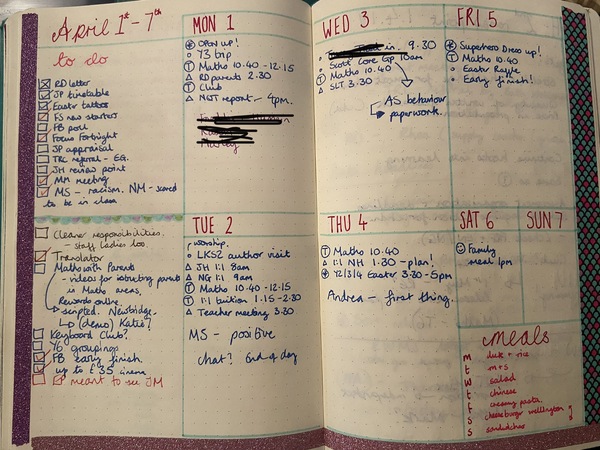 April 1st - 7th
to do
RD letter
JP timetable
Easter tattoos
FS new starters
FB poll
Focus Fortnight
JP appraisal
TRC referral - EG.
JH review point
MM meeting
MS - racism. NM - scared
to be in class
Cleaner responsibilities.
- staff ladies loo.
Translator
Maths with Parents
- videos for instructing parents
in Maths areas.
Rewards online.
scripted. Newbridge.
(demo) Katie?
Keyboard Club?
Y6 groupings
FB early finish.
up to £35 cinema
meant to see JM
MON 1
OPEN UP!
Y3 trip
T Maths 10.40 - 12.15
RD parents 2.30
T Club
NOT report - 4pm.
TUE 2
worship.
LKS2 author visit
JH 1:1 8am
NG 1:1 9am
T Maths 10.40 - 12.15
T 1:1 tuition 1.15 - 2.30
Teacher meeting 3.30
MS - positive
chat? End of day
WED 3
in. 9.30
Scott Core Gp 10am
T Maths 10.40
SLT 3.30
AS behaviour
paperwork.
THU 4
T Maths 10.40
1:1 NH 1.30 - plan!
Y2/3/4 Easter 3.30 - 5pm
Andrea - first thing.
FRI 5
Superhero Dress up!
T Maths 10.40
Easter Raffle
Early finish!
SAT 6
Family
meal 1pm
SUN 7
meals
M duck + rice
t m+s
W salad
t chinese
f creamy pasta.
S cheeseburger wellington
S sandwiches